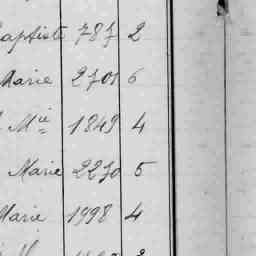 Baptiste 787 2
Marie 2701 6
Mie 1849 4
Marie 2270 5
Marie 1998 4